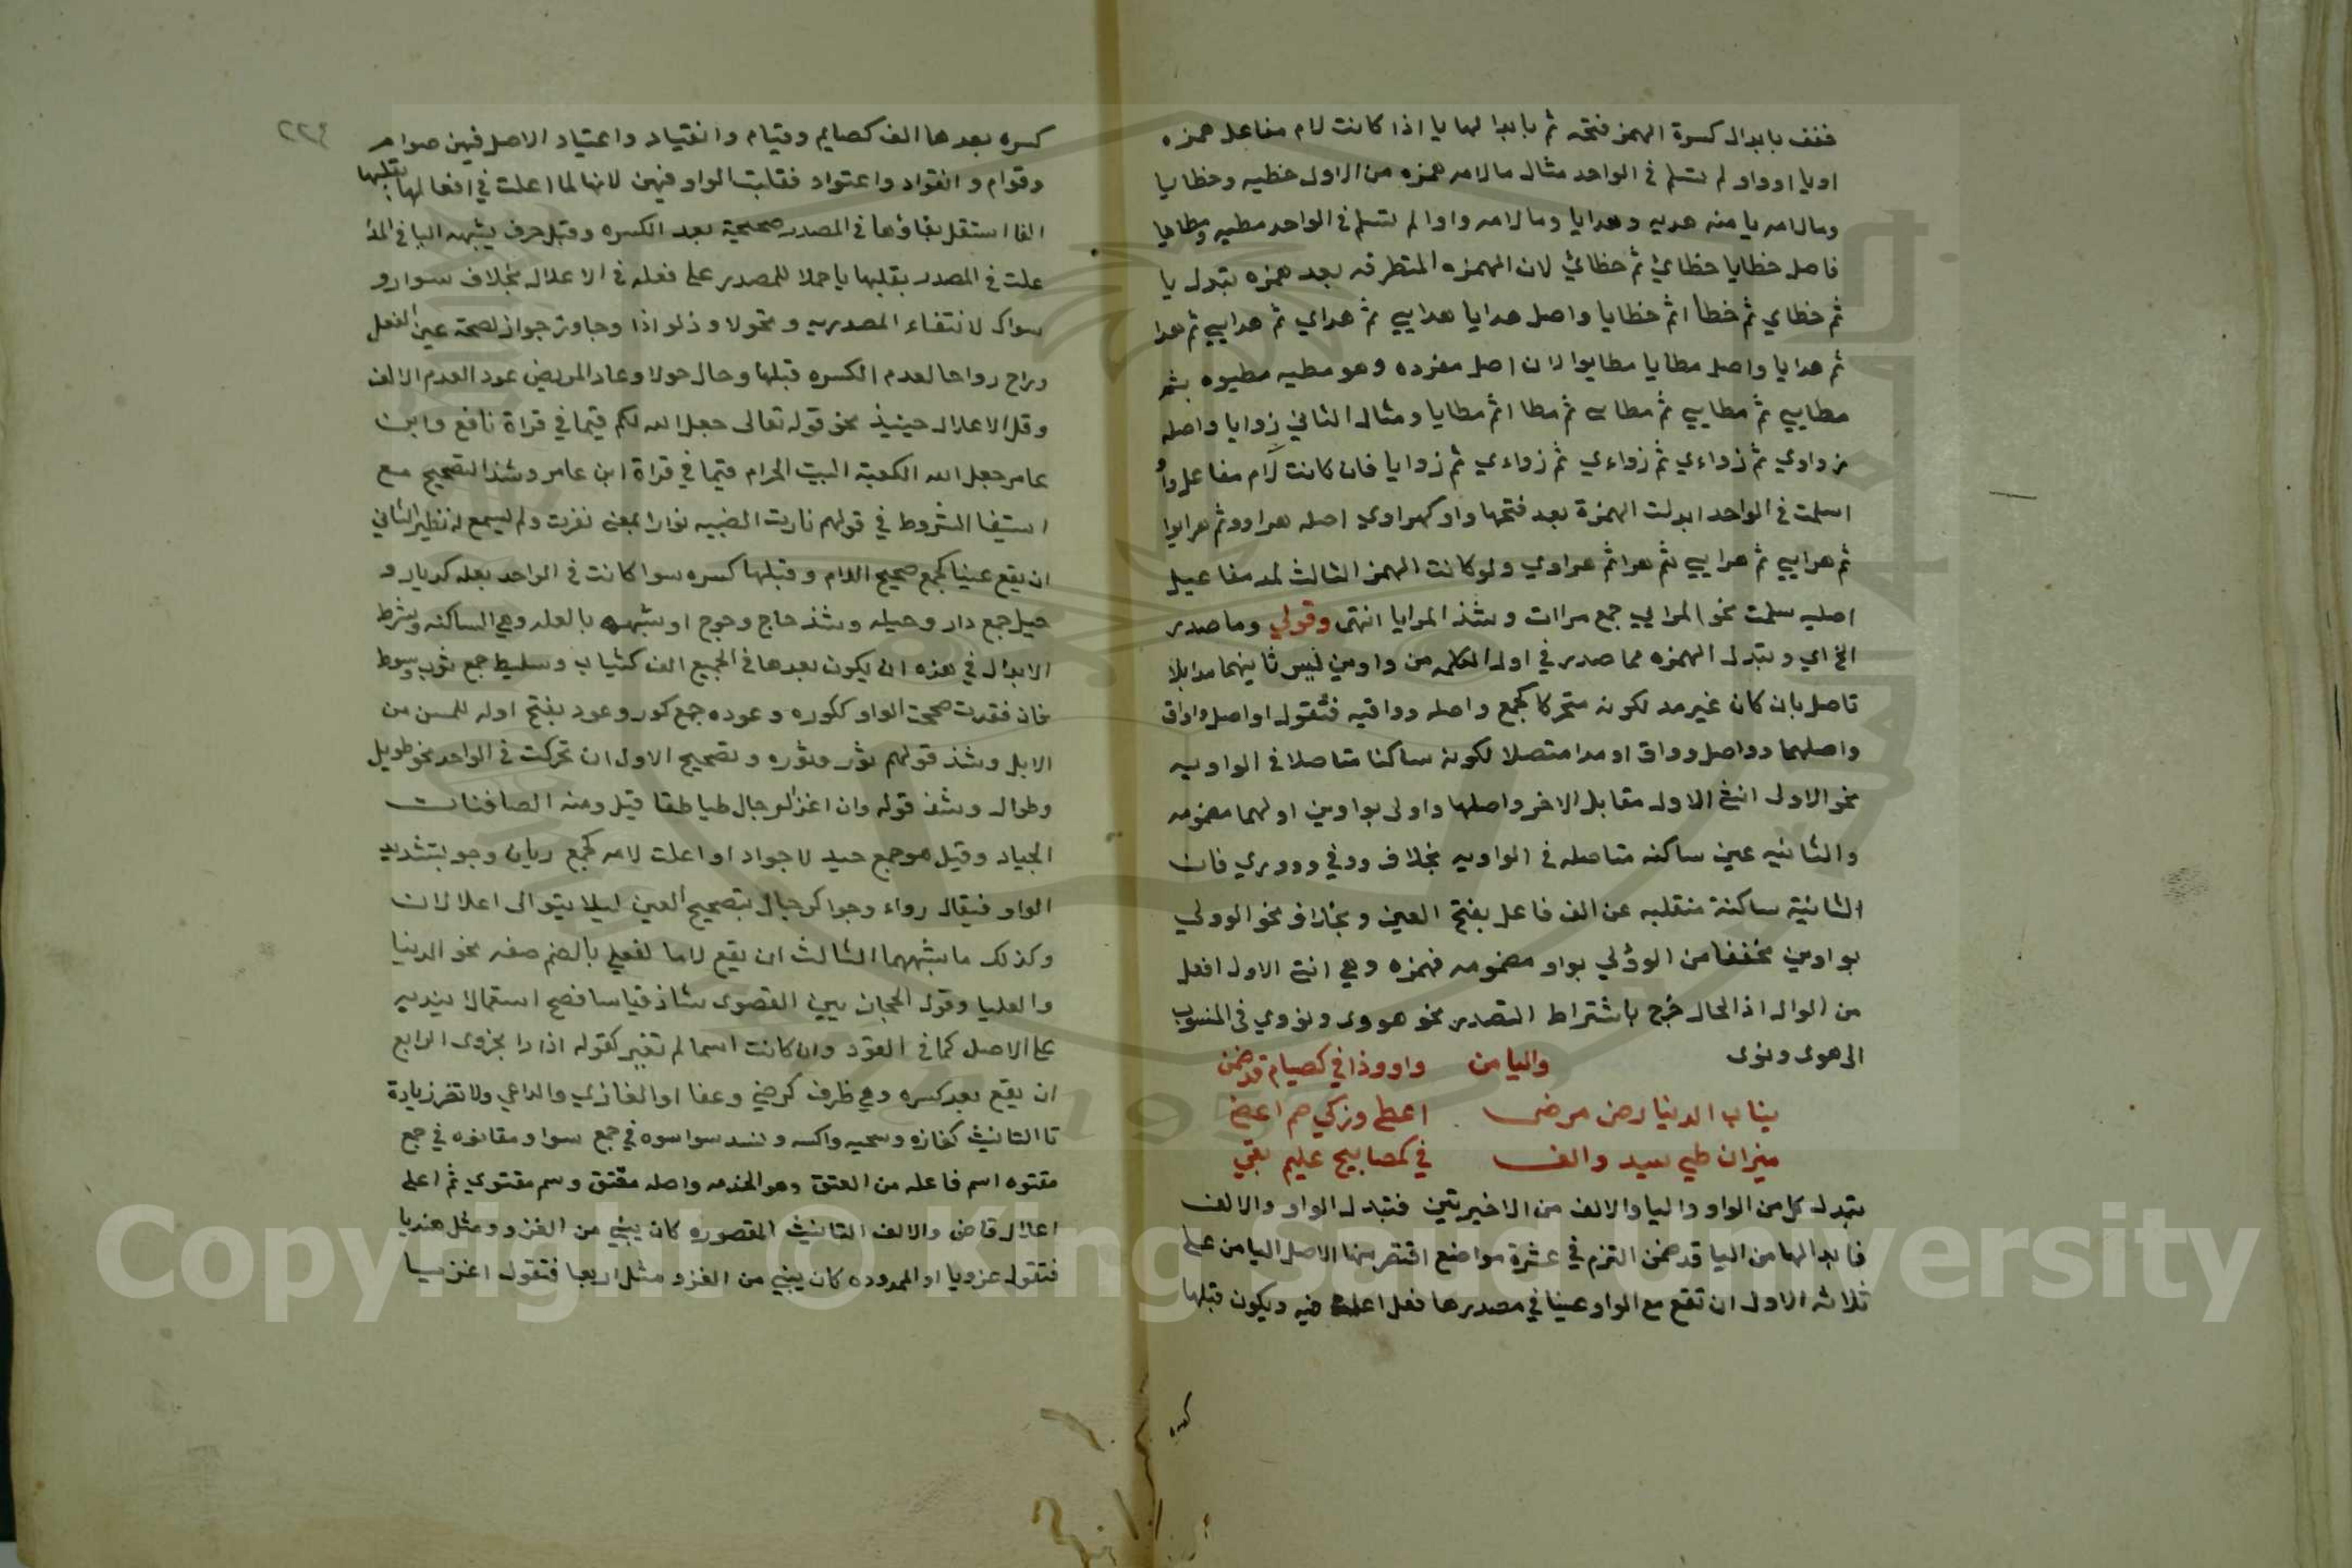 فخفف بابدال كسرة الهمز فتحه ثم بابدالها يا اذا كانت لام مفاعل همزه
او يا او واو لم تسلم في الواحد مثال ما لامه همزه من الاول خطيه وخطايا
وما لامه يا منه هديه وهدايا وما لامه واوا لم تسلم في الواحد مطيه ومطايا
فاصل خطايا خطائ ثم خطائئ لان الهمزه المتطرفه بعد همزه تبدل يا
ثم خطاي ثم خطاا ثم خطايا واصل هدايا هدايي ثم هداي ثم هدايي ثم هدا
ثم هدايا واصل مطايا مطايوا لان اصل مفرده وهو مطيه مطيوه ثم
مطايي ثم مطايي ثم مطا ثم مطايا ومثال الثاني زوايا واصله
زواوي ثم زواءي ثم زواءي ثم زواءي ثم زوايا فان كانت لام مفاعل واوا
اسلمت في الواحد ابدلت الهمزة بعد فتحها واو كهراوي اصله هراوو ثم هرايوا
ثم هرايي ثم هرايي ثم هرا ثم هراوي ولو كانت الهمز الثالث لمد مفاعيل
اصليه سلمت نحو المرايي جمع مراات وشذ المرايا انتهى وقولي وما صدر
الخ اي وتبدل الهمزه مما صدر في اول الكلمه من واوين ليس ثانيهما مدا بلا
تاصل بان كان غير مد لكونه متحركا كجمع واصله وواقيه فتقول اواصل واواق
واصلهما وواصل وواق او مدا متصلا لكونه ساكنا متاصلا في الواويه
نحو الاولى انثى الاول مقابل الاخر واصلها واولى بواوين اولهما مضمومه
والثانيه عين ساكنه متاصله في الواويه بخلاف ووفي ووري فان
الثانية ساكنة منقلبه عن الف فاعل بفتح العين وبخلاف نحو الوولي
بواوين مخففا من الوؤلي بواو مضمومه فهمزه وهي انثى الاول افعل
من الوال اذ الحال خرج باشتراط التصدير نحو هووى ونووي في المنسوب
الى هوى ونوى
واليا من واو وذا في كصيام قد ضمن
يناب الدنيا رضى مرضى اعطى وزكي صم اعض
ميزان طي سيد والف في كمصابيح عليم بقي
تبدل كل من الواو واليا والالف من الاخيرتين فتبدل الواو والالف
فابدالها من اليا قد ضمن التزم في عشرة مواضع اقتصر منها الاصل اليا من على
ثلاثه الاول ان تقع مع الواو عينا في مصدرها فعل اعلت فيه ويكون قبلها
كسره
٢٢٤
كسره بعدها الف كصايم وقيام وانقياد واعتياد الاصل فيهن صوام
وقوام وانقواد واعتواد فقلبت الواو فيهن لانها لما اعلت في افعالها بقلبها
الفا استثقل بقاؤها في المصدر صحيحية بعد الكسره وقبل حرف يشبهه اليا في المد
علت في المصدر بقلبها يا حملا للمصدر على فعله في الاعلال بخلاف سوار و
سواك لانتفاء المصدريه ونحو لاوذ لواذا وجاوز جوازا لصحة عين الفعل
وراح رواحا لعدم الكسره قبلها وحال حولا وعاد المريض عود العدم الالف
وقل الاعلال حينيذ نحو قوله تعالى جعل الله لكم قيما في قراة نافع وابن
عامر جعل الله الكعبة البيت الحرام قيما في قراة ابن عامر وشذ التصحيح مع
استيفا المشروط في قولهم نارت الضبيه نوارا بمعنى نفرت ولم يسمع له نظير الثاني
ان يقع عينا لجمع صحيح اللام وقبلها كسره سوا كانت في الواحد معله كديار و
حيل جمع دار وحيله وشذ حاج وحوج او شبهه بالعله وهي الساكنه وشرط
الابدال في هذه ان يكون بعدها في الجميع الف كثياب وسليط جمع ثوب وسوط
فان فقدت صححت الواو ككوره وعوده جمع كور وعود بفتح اوله للمسن من
الابل وشذ قولهم ثور وثوره وتصحيح الاول ان تحركت في الواحد نحو طويل
وطوال وشذ قوله وان اعز الرجال طيالها قيل ومنه الصافنات
الجياد وقيل هو جمع جيد لا جواد او اعلت لامه كجمع ريان وجو بتشديد
الواو فيقال رواء وجوا كرجال بتصحيح العين ليلا يتوالى اعلالان
وكذلك ما يشبههما الثالث ان يقع لاما لفعلى بالضم صفه نحو الدنيا
والعليا وقول الحجازيين القصوى شاذ قياسا فصح استعمالا ينديه
على الاصل كما في القود وان كانت اسما لم تغير كقوله ادارا بحزوى الرابع
ان يقع بعد كسره وهي ظرف كرضي وعفا او الغازي والداعي ولا تضر زيادة
تا التانيث كغازه وسميه واكسه وشد سواسوه في جمع سوا ومقاتوه في جمع
مقتوه اسم فاعله من القتو وهو الخدمه واصله مقتو وسم مقتوي ثم اعلى
اعلال قاض والالف التانيث المقصوره كان يبني من الغزو ومثل هنديا
فتقول غزويا او الممدوده كان يبني من الغزو مثل اربعا فتقول اغزيا
Copyright © King Saud University